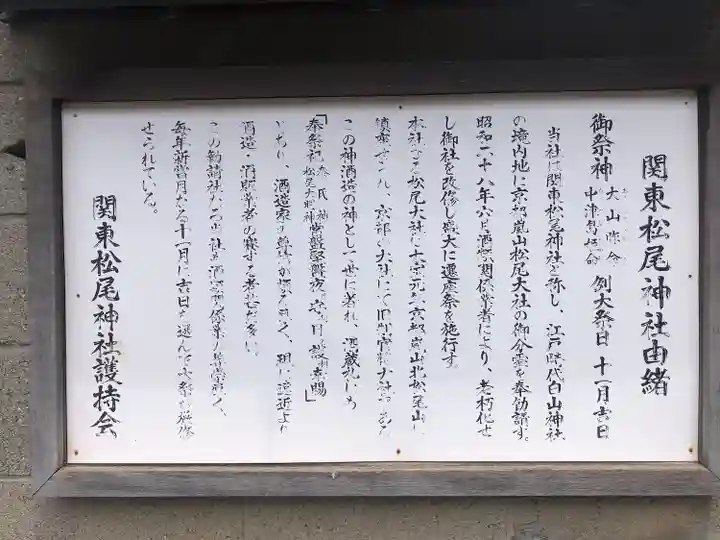 関東松尾神社由緒
御祭神 大山咋命 例大祭日 十一月吉日
中津島姫命
当社は関東松尾神社と称し、江戸時代白山神社
の境内地に京都嵐山松尾大社の御分霊を奉勧請す。
昭和二十八年六月酒類関係業者により、老朽化せ
し御社を改修し盛大に遷座祭を施行す
本社なる松尾大社は大宝元年京都嵐山北松尾山に
鎮座され、京都の大社にて旧官幣大社なる
この神酒造の神として世に著れ、酒蔵
「奉祭祀 松尾大明神 常盤堅磐夜守日護幸賜」
とあり、酒造家の尊信が頗る篤く、現に遠近より
酒造・酒販業者の賽する者甚だ多い。
この勧請社なる当社も酒類関係業の
毎年新嘗月なる十一月に吉日を選んで大祭を厳修
せられている。
関東松尾神社護持会